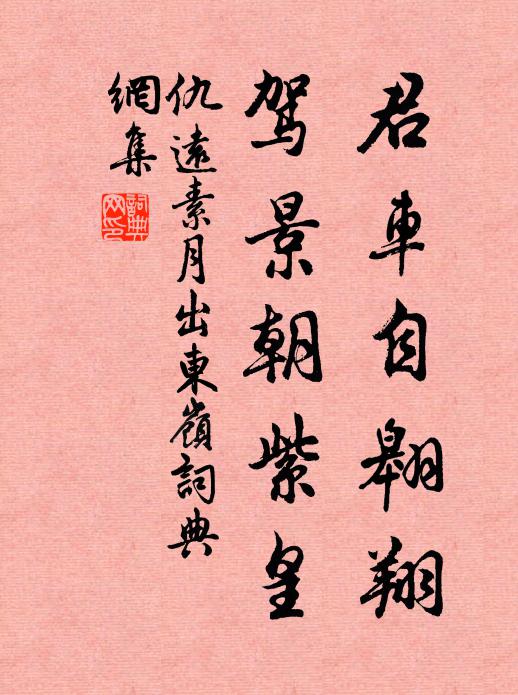 君車自翱翔
驾景朝紫皇
仇遠素月出東嶺詞典
網集
詞典网印